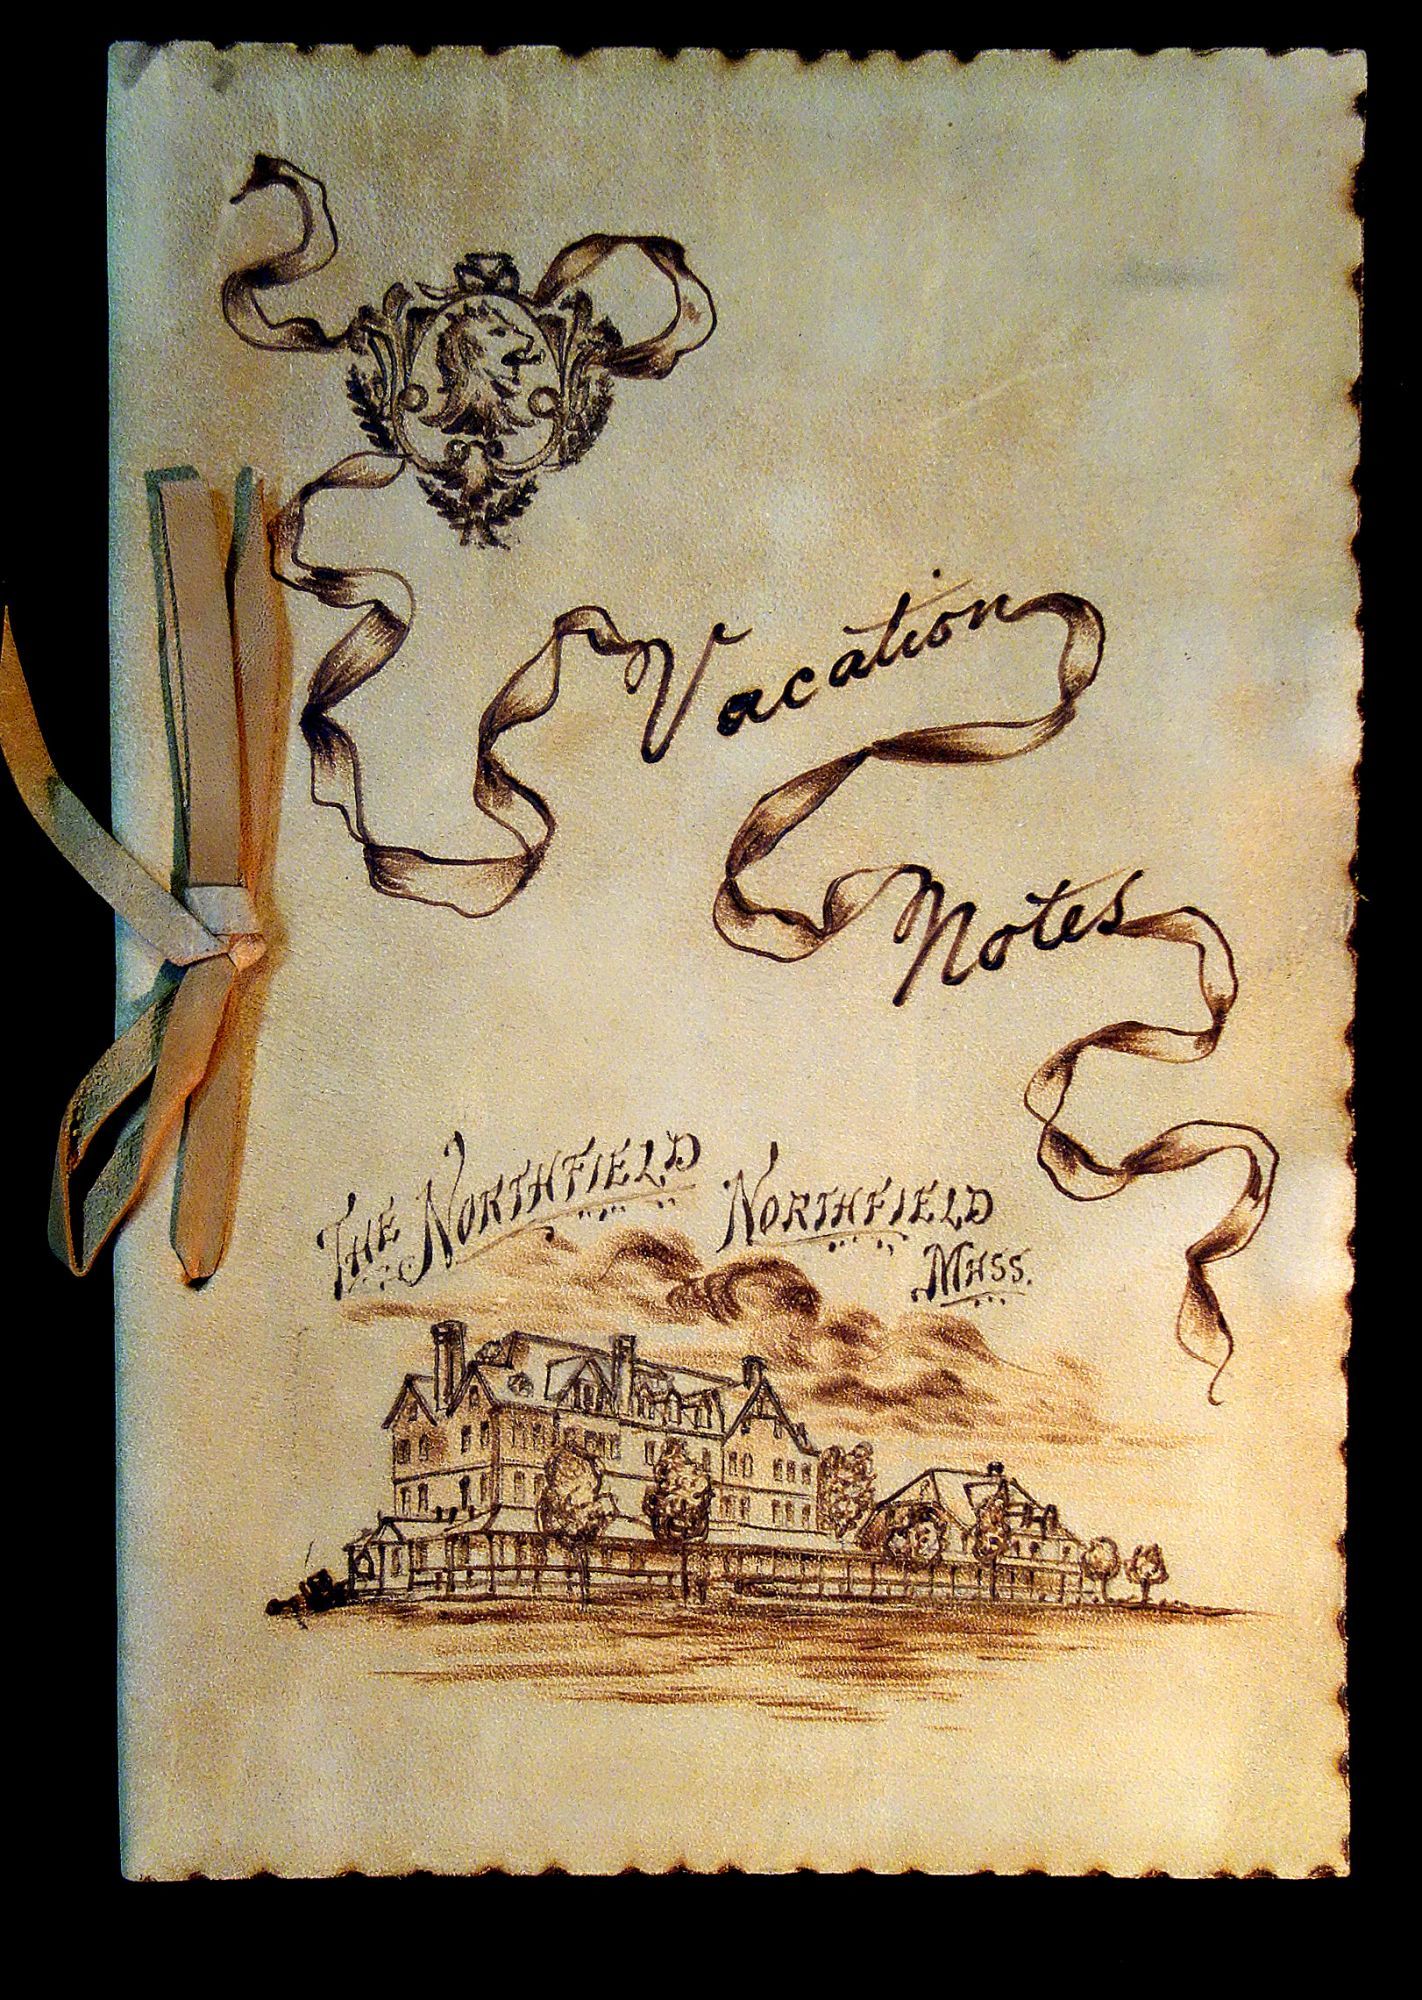 Vacation
Notes
THE NORTHFIELD
NORTHFIELD
MASS.